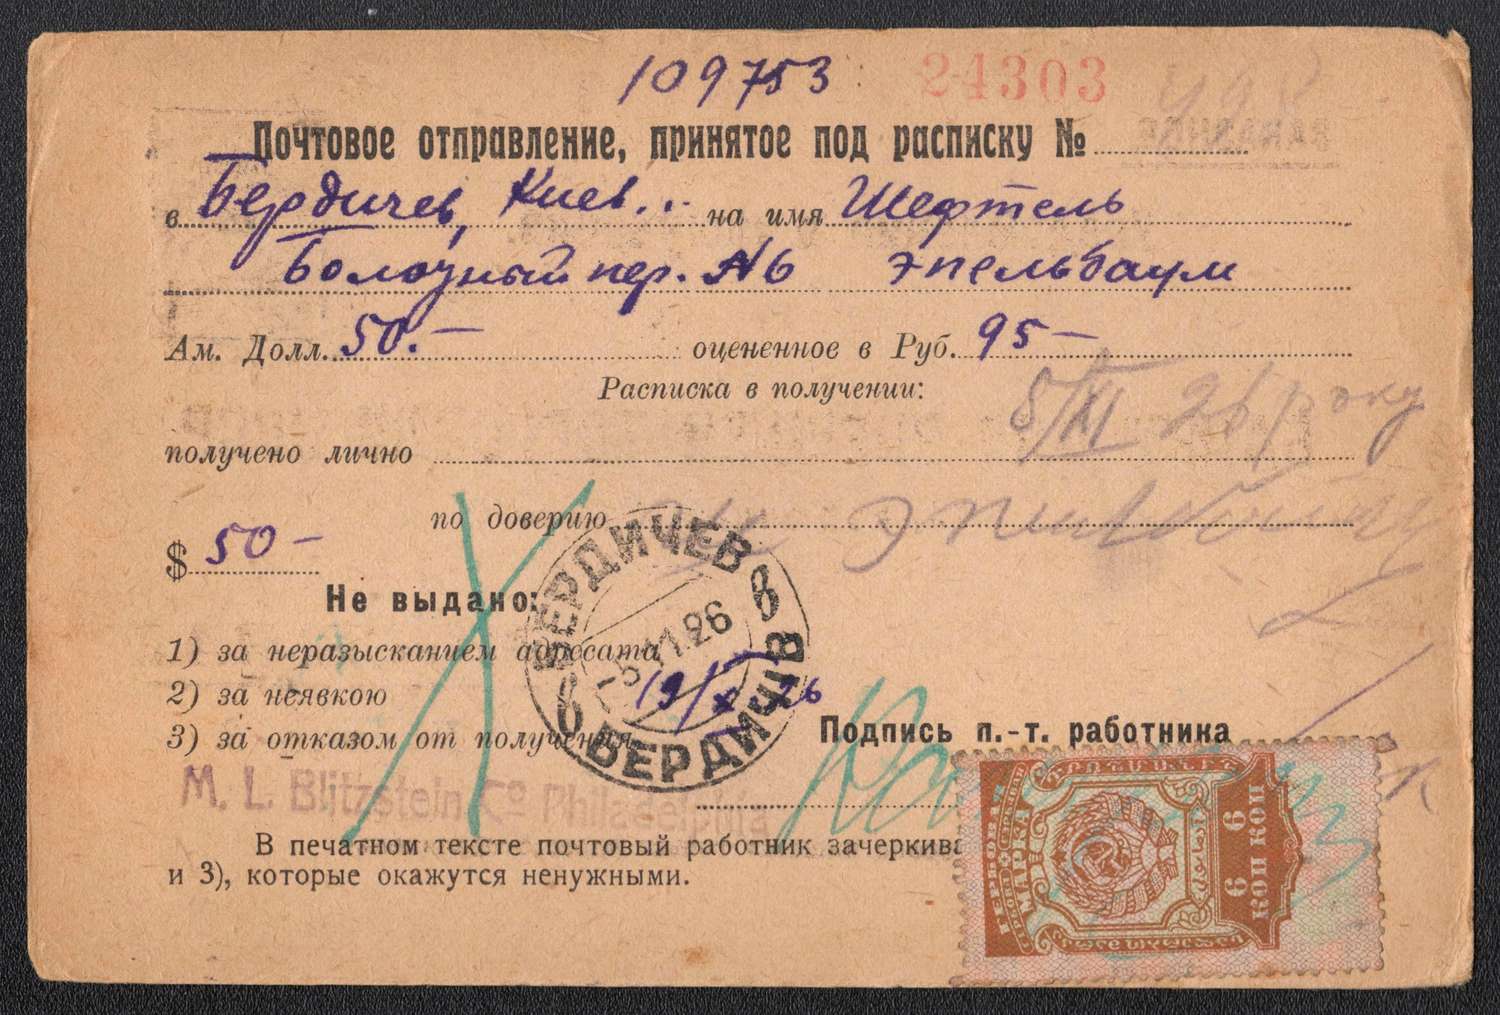 109753 24303
Почтовое отправление, принятое под расписку №
в Бердичев, Киев... на имя Шефтель
Болотный пер. №6 Эпельбаум
Ам. Долл. 50.— оцененное в Руб. 95—
Расписка в получении:
5/XI 26 року
получено лично
по доверию
$ 50—
Не выдано:
1) за неразысканием адресата
2) за неявкою
3) за отказом от получения
БЕРДИЧЕВ
-5.11.26
19/X 26
БЕРДИЧІВ
Подпись п.-т. работника
M. L. Blitzstein Co Philadelphia
В печатном тексте почтовый работник зачеркива
и 3), которые окажутся ненужными.
ГЕРБОВАЯ
МАРКА
6 6
КОП КОП